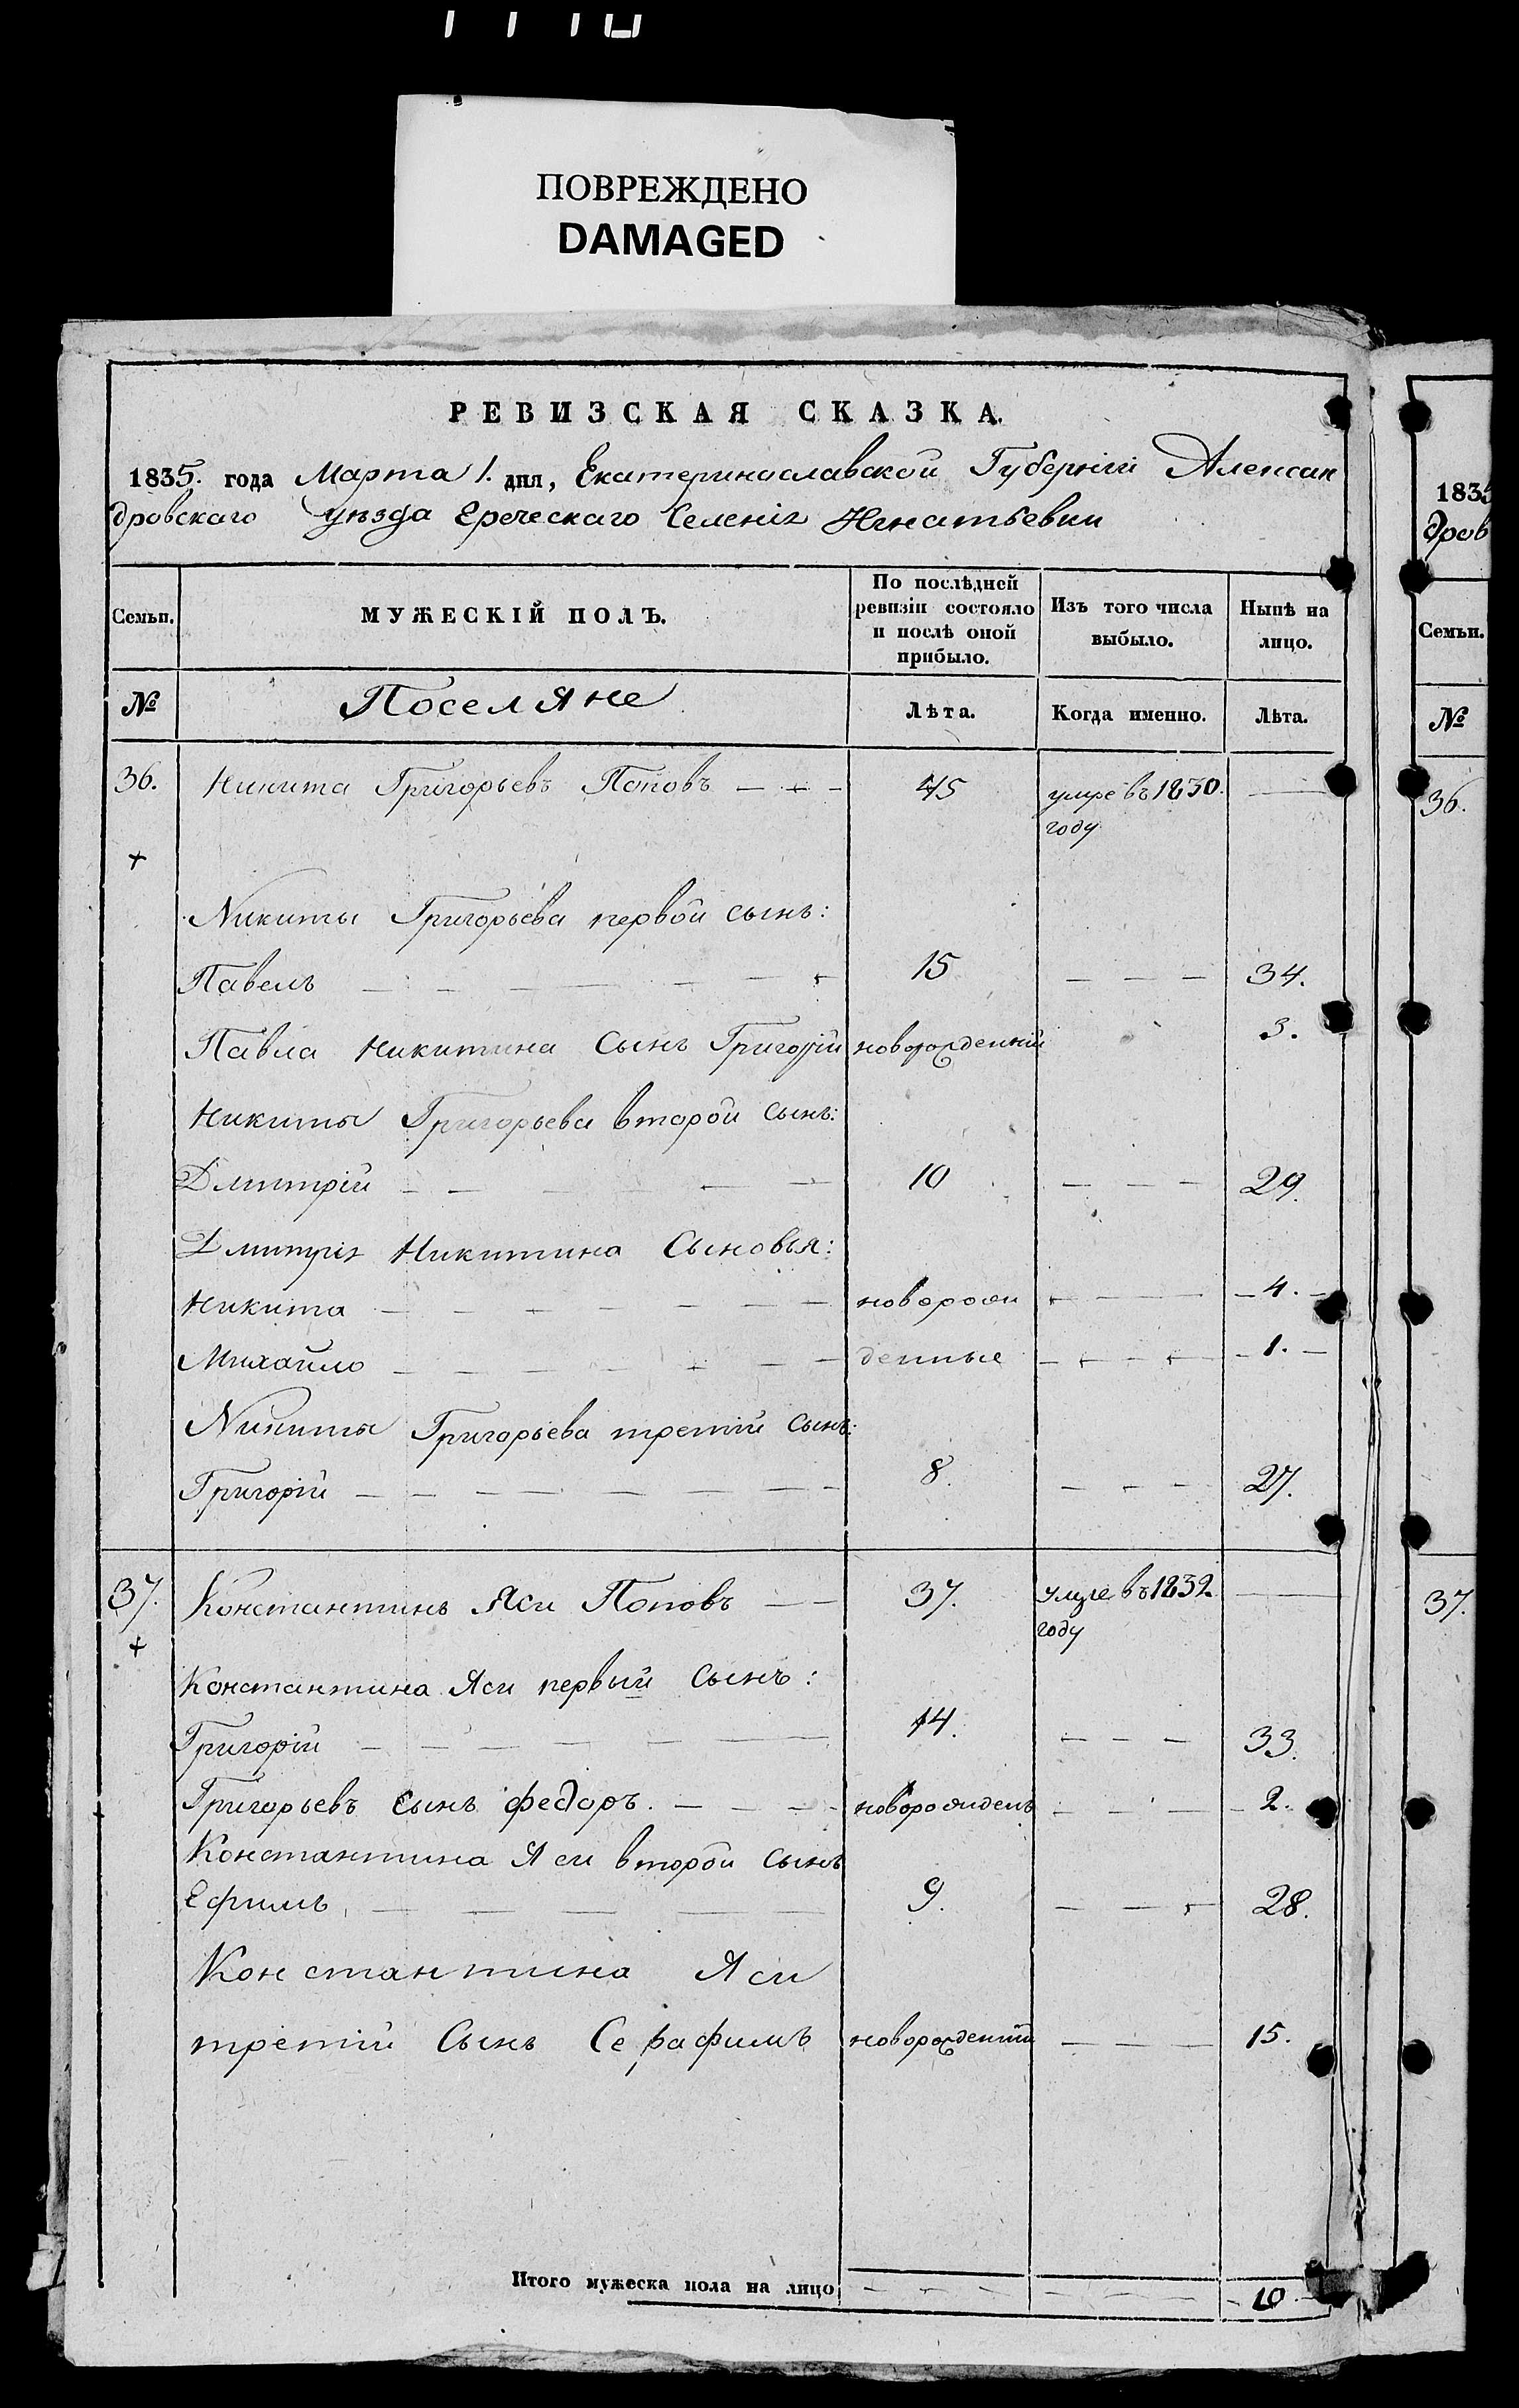 ПОВРЕЖДЕНО
DAMAGED
РЕВИЗСКАЯ СКАЗКА.
1835. года Марта 1. дня, Екатеринославской Губерніи Алексан
дровскаго уѣзда Греческаго Селенія Игнатьевки
Семьи.
МУЖЕСКІЙ ПОЛЪ.
По послѣдней ревизіи состояло и послѣ оной прибыло.
Изъ того числа выбыло.
Нынѣ на лицо.
№
Поселяне
Лѣта.
Когда именно.
Лѣта.
36. Никита Григорьевъ Поповъ — — — 45 умре въ 1830. —
году
+
Никиты Григорьева первой сынъ:
Павелъ — — — — — — 15 — — — 34.
Павла Никитина Сынъ Григорій новорожденній 3.
Никиты Григорьева второй сынъ:
Дмитрій — — — — — 10 — — — 29.
Дмитрія Никитина Сыновья:
Никита — — — — — — — новорож — — — 4. —
Михайло — — — — — — — денные — — — — — 1. —
Никиты Григорьева третій сынъ:
Григорій — — — — — — — 8. — — — 27.
37. Константинъ Яси Поповъ — — 37. умре въ 1832. —
году
+
Константина Яси первый Сынъ:
Григорій — — — — — — 14. — — — 33.
Григорьевъ сынъ Федоръ. — — — новорожденъ — — — — 2.
Константина Яси второй сынъ
Ефимъ, — — — — — 9. — — — 28.
Константина Яси
третій Сынъ Серафимъ новорожденній — — — 15.
Итого мужеска пола на лицо — — — — — — — 10. —
1835
дров
Семьи.
№
36.
37.